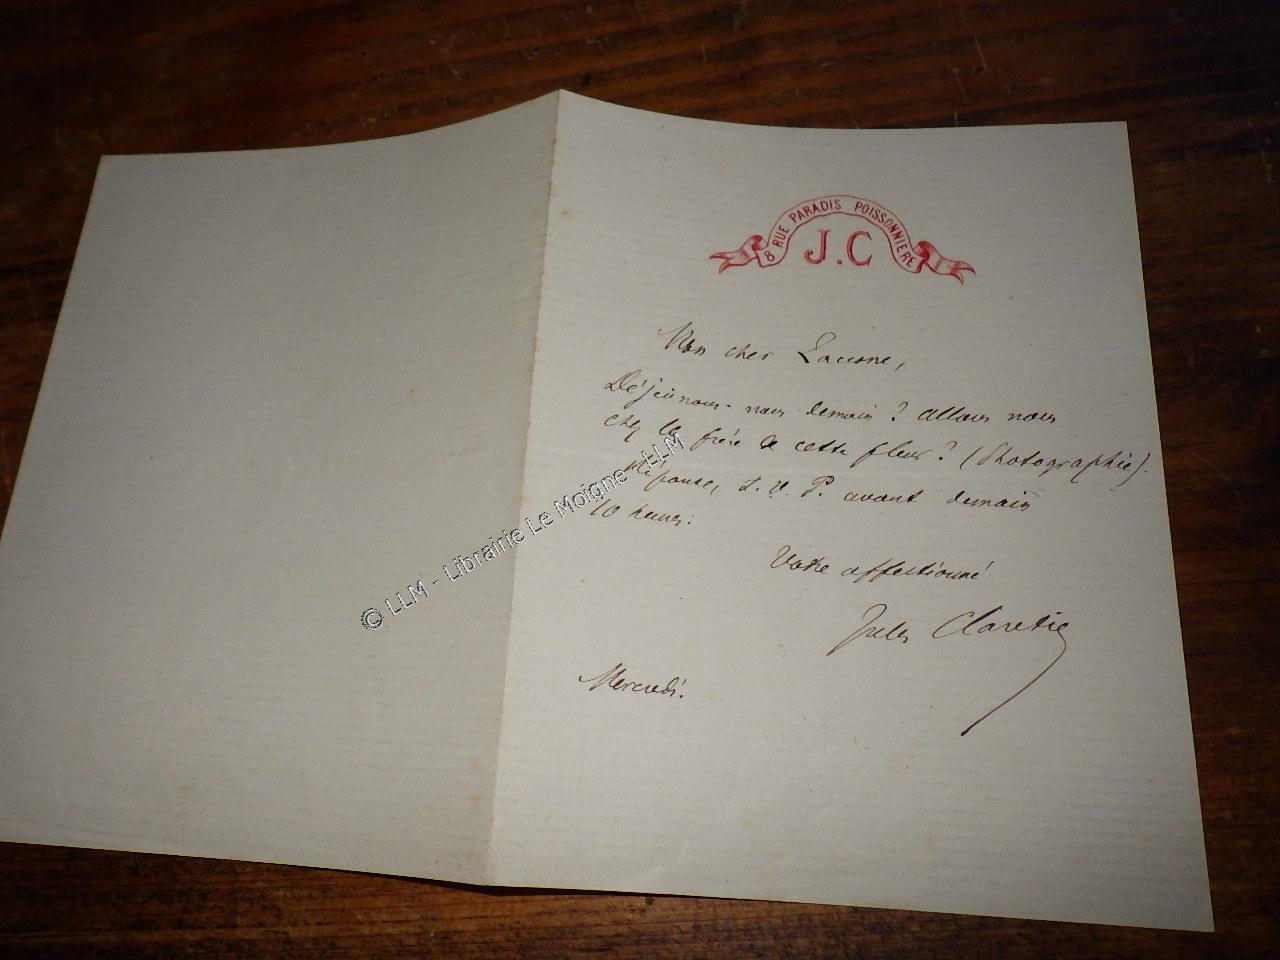 8 RUE PARADIS POISSONNIÈRE
J.C
Mon cher
Déjeûnons-nous demain ? allons nous
chez le frère de cette fleur ? (Photographie).
Réponse, S. V. P. avant demain
10 heures.
Votre affectionné
Jules Claretie
Mercredi.
© LLM - Librairie Le Moigne - LLM